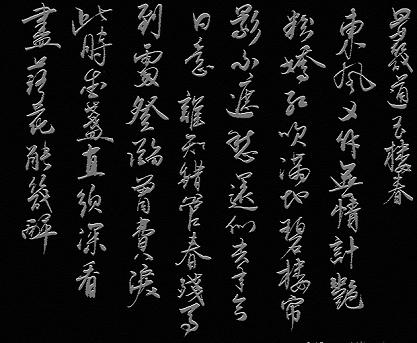 晏幾道玉樓春
東風又作無情計艷
粉嬌紅吹滿地碧樓帘
影不遮愁還似去年今
日意 誰知錯管春殘事
到處登臨曾費淚
此時金盞直須深看
盡落花能幾醉